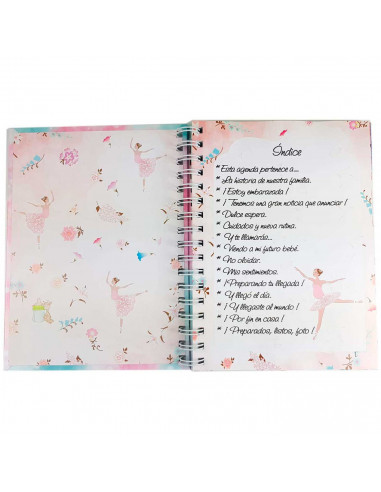 Índice
* Esta agenda pertenece a...
* La historia de nuestra familia.
* ¡Estoy embarazada!
* ¡Tenemos una gran noticia que anunciar!
* Dulce espera.
* Cuidados y nueva rutina.
* Y te llamarás...
* Viendo a mi futuro bebé.
* No olvidar.
* Mis sentimientos.
* ¡Preparando tu llegada!
* Y llegó el día.
* ¡Y llegaste al mundo!
* ¡Por fin en casa!
* ¡Preparados, listos, foto!